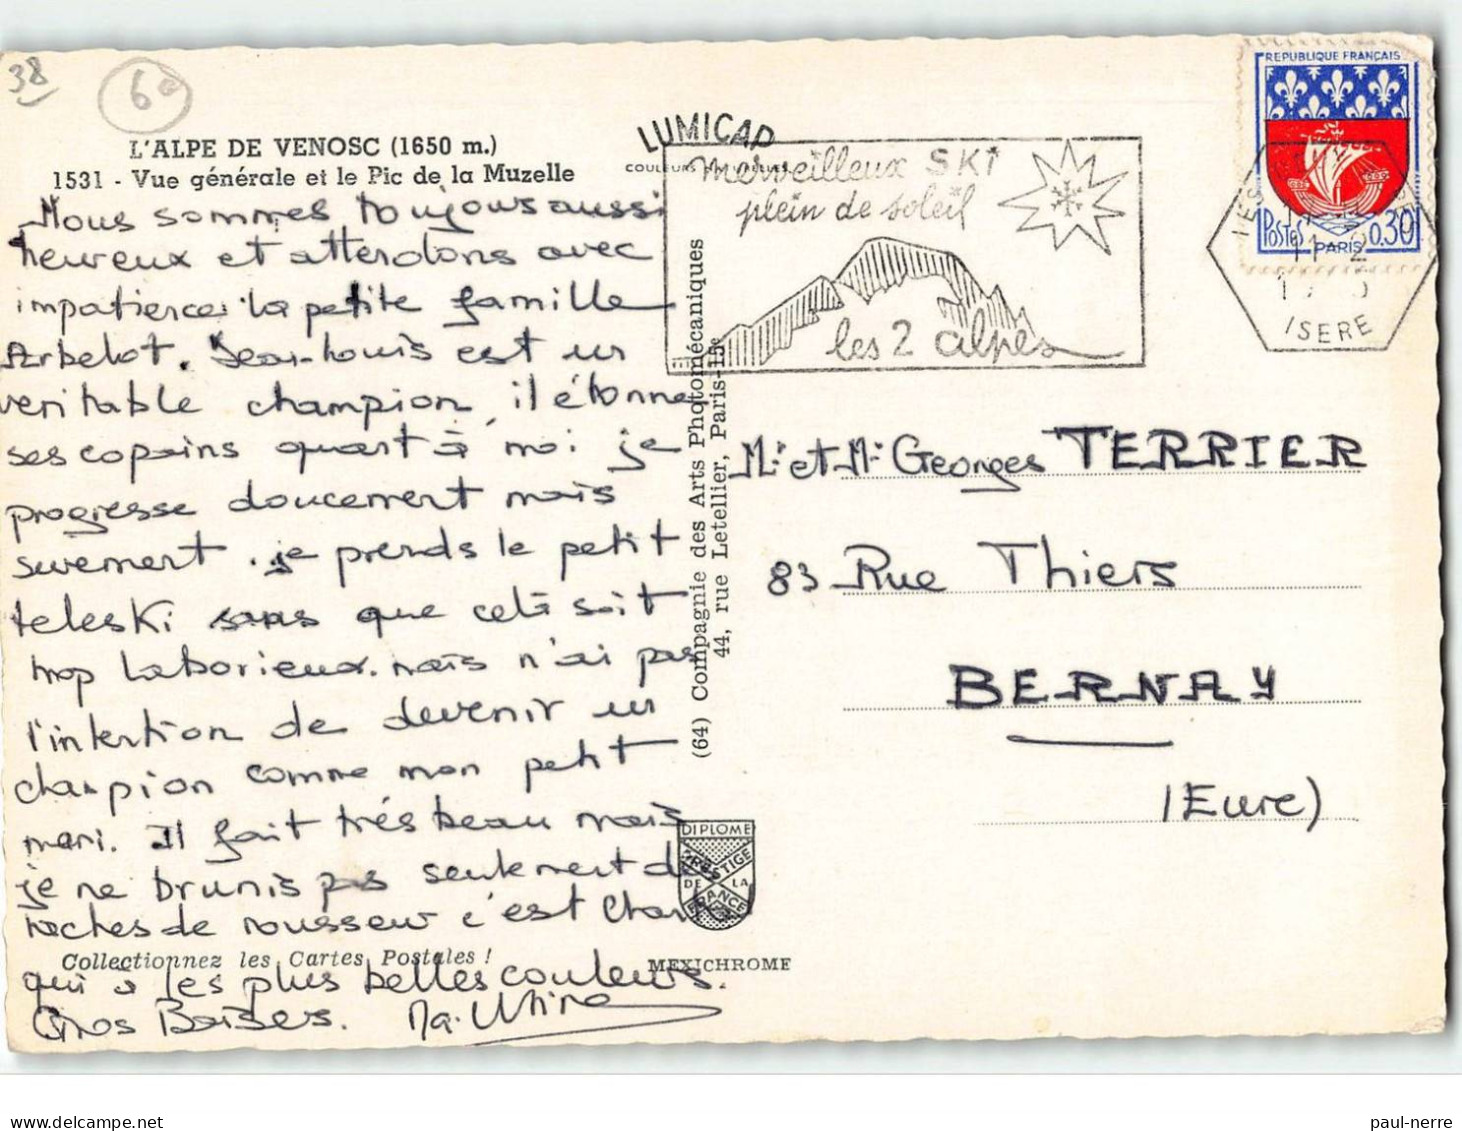 38
60
L'ALPE DE VENOSC (1650 m.)
1531 - Vue générale et le Pic de la Muzelle
Nous sommes toujours aussi
heureux et attendons avec
impatience la petite famille
Arbelot. Jean-Louis est un
veritable champion, il étonne
ses copains quant à moi je
progresse doucement mais
surement. je prends le petit
teleski sans que celà soit
trop laborieux. mais n'ai pas
l'intention de devenir un
champion comme mon petit
mari. Il fait très beau mais
je ne brunis pas seulement des
taches de rousseur c'est
qui a les plus belles couleurs.
Gros Baisers.
Collectionnez les Cartes Postales !
LUMICAP
COULEURS
merveilleux SKI
plein de soleil
les 2 alpes
(64) Compagnie des Arts Photomécaniques
44, rue Letellier, Paris-15e
DIPLOME
PRESTIGE
DE LA
FRANCE
MEXICHROME
REPUBLIQUE FRANÇAISE
POSTES PARIS 0,30
ISERE
Mr et Me Georges TERRIER
83 Rue Thiers
BERNAY
(Eure)
paul-nerre